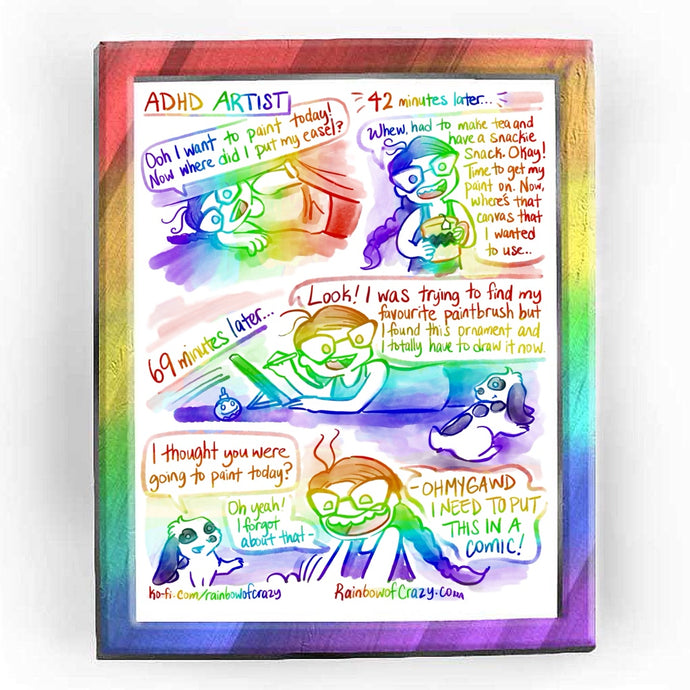 ADHD ARTIST
Ooh I want to paint today!
Now where did I put my easel?
42 minutes later...
Whew, had to make tea and
have a snackie
snack. Okay!
Time to get my
paint on. Now,
where's that
canvas that
I wanted
to use..
69 minutes later...
Look! I was trying to find my
favourite paintbrush but
I found this ornament and
I totally have to draw it now.
I thought you were
going to paint today?
Oh yeah!
I forgot
about that-
-OHMYGAWD
I NEED TO PUT
THIS IN A
COMIC!
ko-fi.com/rainbowofcrazy
RainbowofCrazy.com